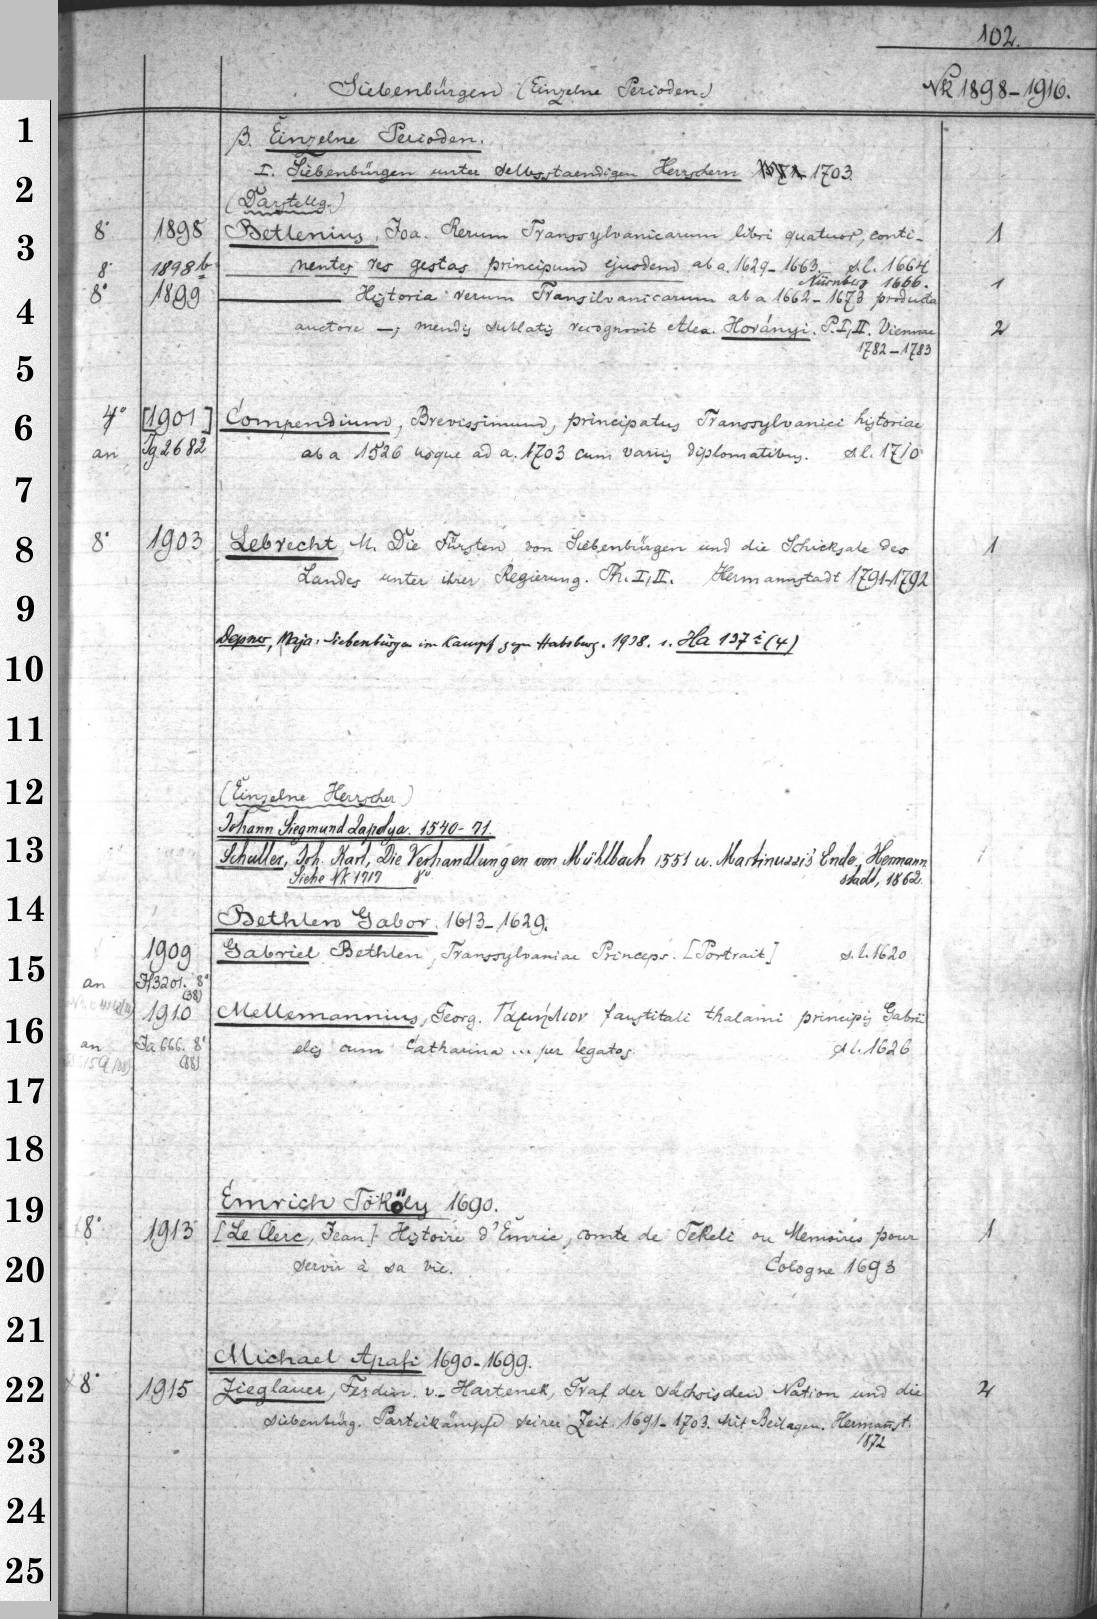 102.
Siebenbürgen (Einzelne Perioden.)
Nk 1898-1916.
β. Einzelne Perioden.
I. Siebenbürgen unter selbsstaendigen Herrschern 1703.
(Darstellg.)
8° 1898 Betlenius, Joa. Rerum Transsylvanicarum libri quatuor, conti- 1
8° 1898 b nentes res gestas principum ejusdem ab a. 1629-1663. s. l. 1664
Nürnberg 1666. 1
8° 1899 Historia rerum Transilvanicarum ab a 1662-1673 producta
auctore —, mendis sublatis recognovit Alex. Horányi. P. I, II. Viennae 2
1782-1783
4° [1901] Compendium, Brevissimum, principatus Transsylvanici historiae
an Ig 2682 ab a 1526 usque ad a. 1703 cum variis diplomatibus. s. l. 1710
8° 1903 Lebrecht, M. Die Fürsten von Siebenbürgen und die Schicksale des 1
Landes unter ihrer Regierung. Th. I, II. Hermannstadt 1791-1792
Depner, Maja: Siebenbürgen im Kampf gegen Habsburg. 1938. s. Ha 137 i (4)
(Einzelne Herrscher)
Johann Siegmund Zapolya. 1540-71.
Schuller, Joh. Karl, Die Verhandlungen von Mühlbach 1551 u. Martinuzzi's Ende, Hermann
Siehe Nk 1717 8° stadt, 1862.
Bethlen Gabor. 1613-1629.
1909 Gabriel Bethlen, Transsylvaniae Princeps. [Portrait] s. l. 1620
an 3201. 8°
(38)
1910 Mellemannius, Georg. Γαμήλιον faustitati thalami principis Gabri
an Ja 666. 8° elis cum Catharina ... per legatos s. l. 1626
(88)
Emrich Tököly 1690.
8° 1913 [Le Clerc, Jean] Histoire d'Emric, comte de Tekeli ou Memoires pour 1
servir à sa vie. Cologne 1693
Michael Apafi 1690-1699.
8° 1915 Zieglauer, Ferdin. v. - Harteneck, Graf der sächsischen Nation und die 2
siebenbürg. Parteikämpfe seiner Zeit. 1691-1703. Mit Beilagen. Hermannst.
1872
1
2
3
4
5
6
7
8
9
10
11
12
13
14
15
16
17
18
19
20
21
22
23
24
25